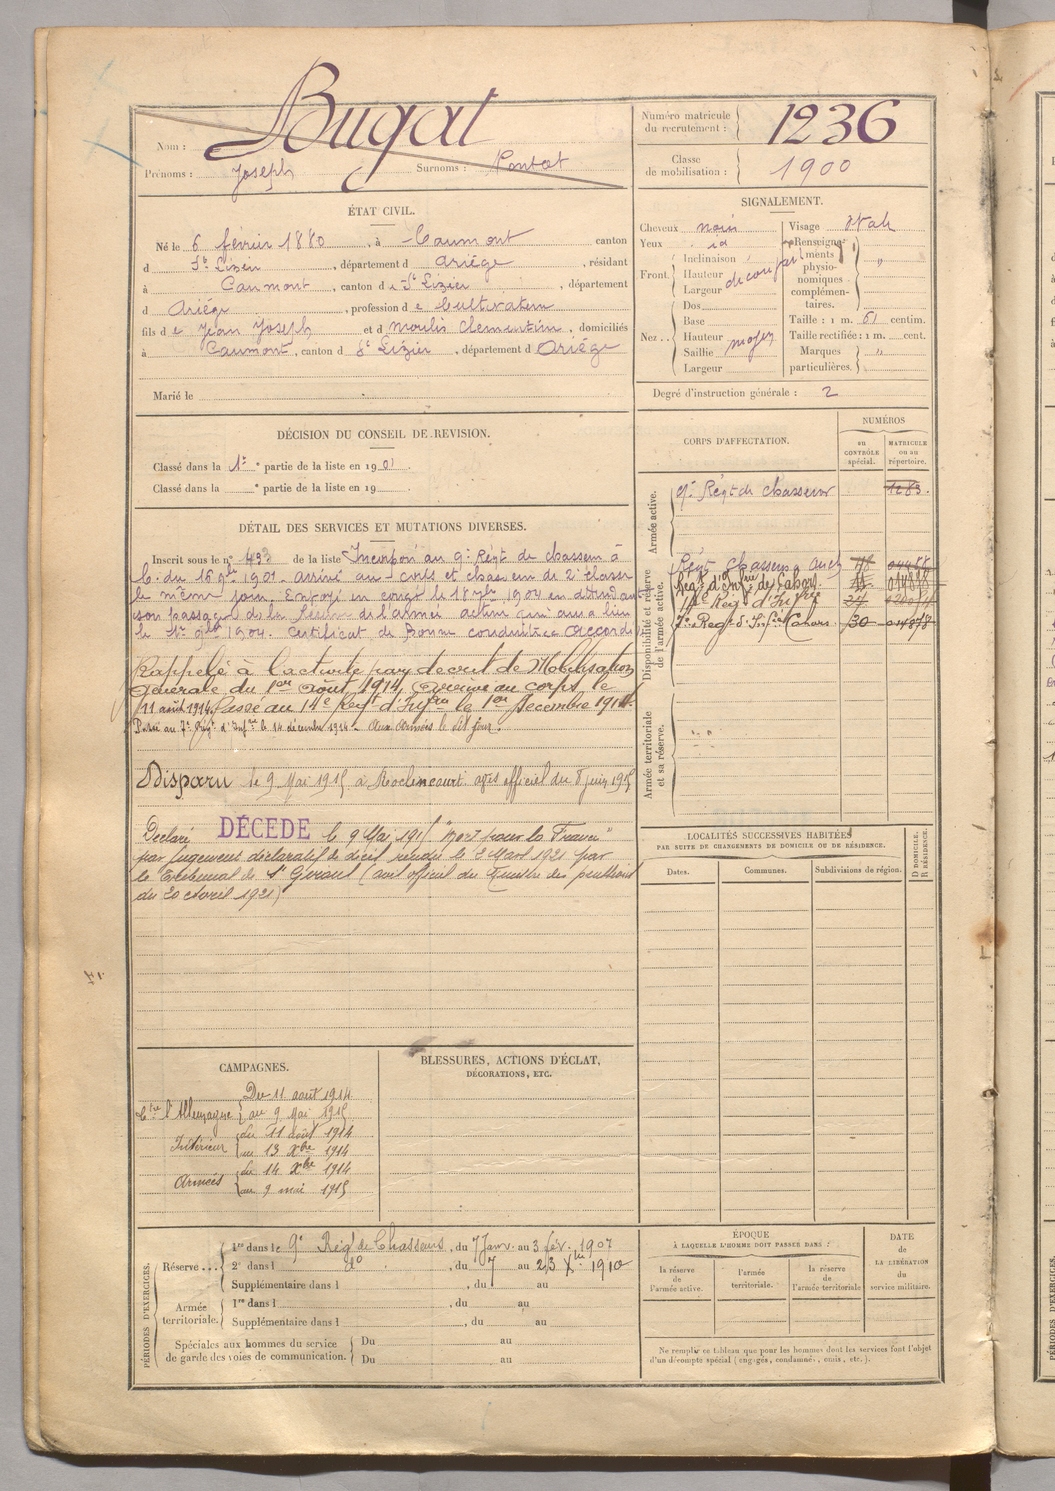 Nom : Bugat
Prénoms : Joseph Surnoms :
Numéro matricule du recrutement : 1236
Classe de mobilisation : 1900
ÉTAT CIVIL.
Né le 6 février 1880, à Caumont canton
d St Lizier, département d Ariège, résidant
à Caumont, canton d St Lizier, département
d Ariège, profession d e Cultivateur
fils d e Jean Joseph et d Moulis Clementine, domiciliés
à Caumont, canton d St Lizier, département d Ariège
Marié le
SIGNALEMENT.
Cheveux noir
Yeux id
Front. Inclinaison
Hauteur
Largeur
Nez.. Dos
Base
Hauteur moyen
Saillie
Largeur
Visage oval
Renseignements physionomiques complémentaires. "
Taille : 1 m. 61 centim.
Taille rectifiée : 1 m. cent.
Marques particulières. "
Degré d'instruction générale : 2
DÉCISION DU CONSEIL DE REVISION.
Classé dans la 1e partie de la liste en 1901.
Classé dans la e partie de la liste en 19
DÉTAIL DES SERVICES ET MUTATIONS DIVERSES.
Inscrit sous le n° de la liste Incorporé au 9e Régt de chasseurs à
C. du 16 9bre 1901. Arrivé au corps et chasseur de 2e classe
le même jour. Envoyé en congé le 1904 en attendant
son passage dans la réserve de l'armée active qui aura lieu
le 1er 9bre 1904. Certificat de Bonne conduite accordé
Rappelé à l'activité par décret de Mobilisation
Générale du 1er août 1914, arrivé au corps le
11 août 1914. Passé au 14e Régt d'Infrie le 1er Décembre 1914.
Passé au 7e Régt d'Infrie le 14 décembre 1914. Aux Armées le dit jour.
Disparu le 9 Mai 1915 à Roclincourt avis officiel du 8 juin 1915
Déclaré DÉCÉDÉ le 9 Mai 1915 "Mort pour la France"
par jugement déclaratif de décès rendu le 2 Mars 1921 par
le Tribunal de St Girons (avis officiel du Ministre des pensions
du 20 Avril 1921)
CORPS D'AFFECTATION.
NUMÉROS
au CONTRÔLE spécial.
MATRICULE ou au répertoire.
Armée active.
9e Régt de chasseurs 1283.
Disponibilité et réserve de l'armée active.
Régt Chasseurs Auch
Régt d'Infrie de Cahors
14e Régt d'Infrie
7e Régt d'Infrie Cahors
Armée territoriale et sa réserve.
LOCALITÉS SUCCESSIVES HABITÉES
PAR SUITE DE CHANGEMENTS DE DOMICILE OU DE RÉSIDENCE.
Dates. Communes. Subdivisions de région. D DOMICILE. R RÉSIDENCE.
CAMPAGNES.
Ctre l'Allemagne Du 11 août 1914
au 9 Mai 1915
Intérieur du 11 Août 1914
au 13 Xbre 1914
Armées du 14 Xbre 1914
au 9 mai 1915
BLESSURES, ACTIONS D'ÉCLAT,
DÉCORATIONS, ETC.
PÉRIODES D'EXERCICES.
Réserve... 1re dans le 9e Régt de Chasseurs, du 7 Janv. au 3 fév. 1907
2e dans l do, du 7 au 23 Xbre 1910
Supplémentaire dans l , du au
Armée territoriale. 1re dans l , du au
Supplémentaire dans l , du au
Spéciales aux hommes du service de garde des voies de communication. Du au
Du au
ÉPOQUE
À LAQUELLE L'HOMME DOIT PASSER DANS :
la réserve de l'armée active.
l'armée territoriale.
la réserve de l'armée territoriale
DATE de LA LIBÉRATION du service militaire.
Ne remplir ce tableau que pour les hommes dont les services font l'objet
d'un décompte spécial (engagés, condamnés, omis, etc.).